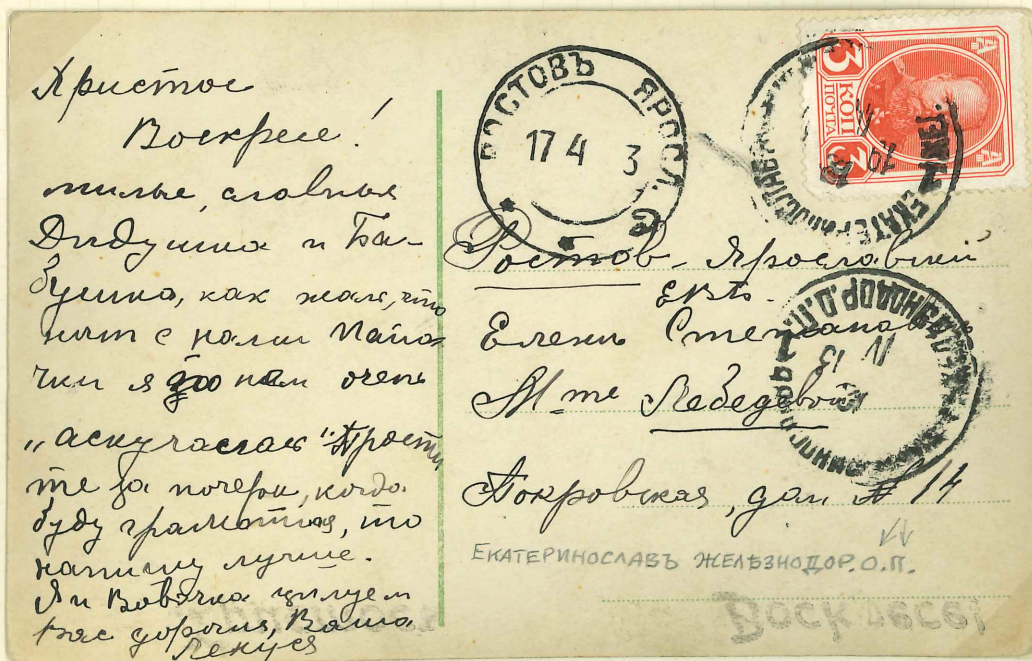 Христос
Воскресе!
милые, славные
Дидушка и Ба-
бушка, как жаль, что
нит с нами Папо-
чки я по нем очень
„аскучалас" Прости
те за почерк, когда
буду грамотная, то
напишу лучше.
Я и Вовочка цилуем
вас дорогия, Ваша
Ленуся
РОСТОВЪ ЯРОСЛ.
17 4 3
3 КОП 3
ПОЧТА
ЕКАТЕРИНОСЛАВЪ
Ростов-Ярославский
ЕВБ.
Елене Степанов
IV 13
M-me Лебедевой
Покровская, дом № 14
ЕКАТЕРИНОСЛАВЪ ЖЕЛѢЗНОДОР. О.П.
Воскресе!